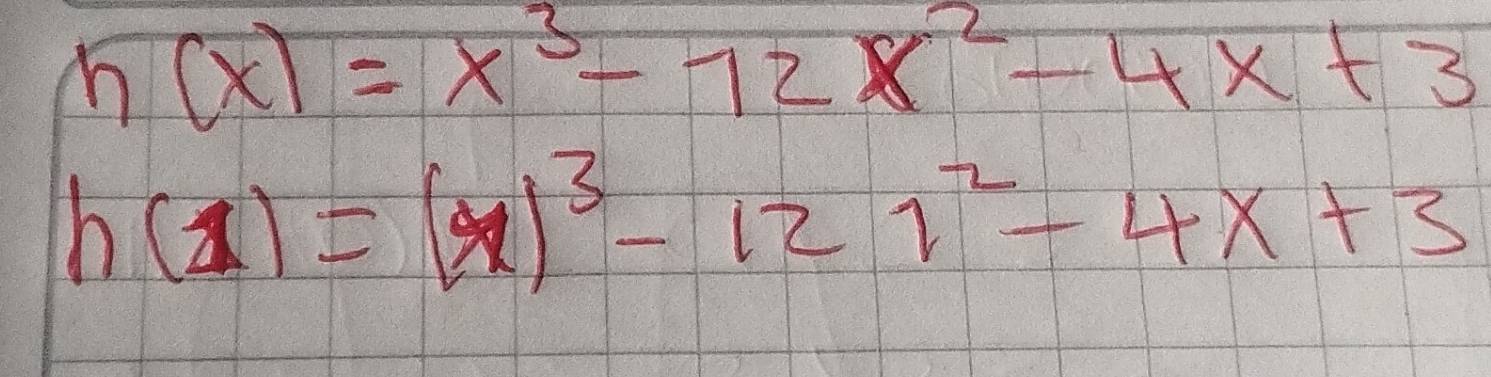 h(x) = x³ - 12x² - 4x + 3
h(1) = (1)³ - 12 1² - 4x + 3